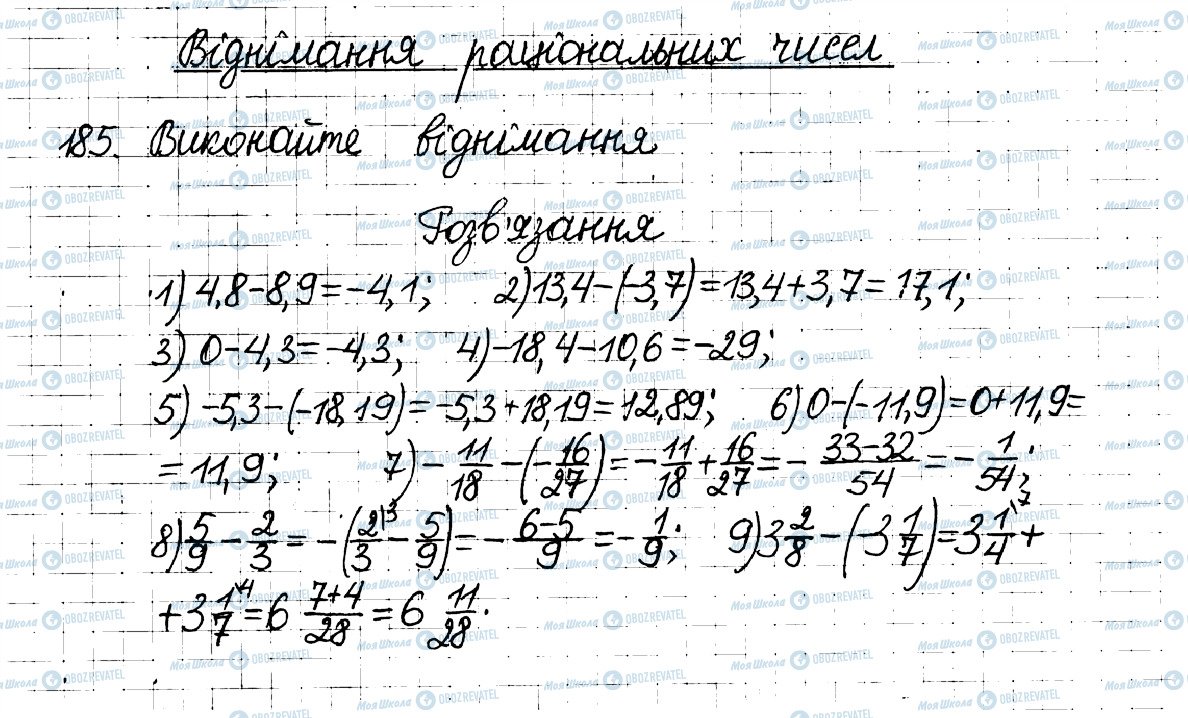 Віднімання раціональних чисел
185. Виконайте віднімання
Розв'язання
1) 4,8-8,9=-4,1; 2) 13,4-(-3,7)=13,4+3,7=17,1;
3) 0-4,3=-4,3; 4) -18,4-10,6=-29;
5) -5,3-(-18,19)=-5,3+18,19=12,89; 6) 0-(-11,9)=0+11,9=
=11,9; 7) -11/18-(-16/27)=-11/18+16/27=-(33-32)/54=-1/54;
8) 5/9-2/3=-(2/3\3-5/9)=-(6-5)/9=-1/9; 9) 3 2/8-(-3 1/7)=3 1/4\7+
+3 1/7\4=6 (7+4)/28=6 11/28.